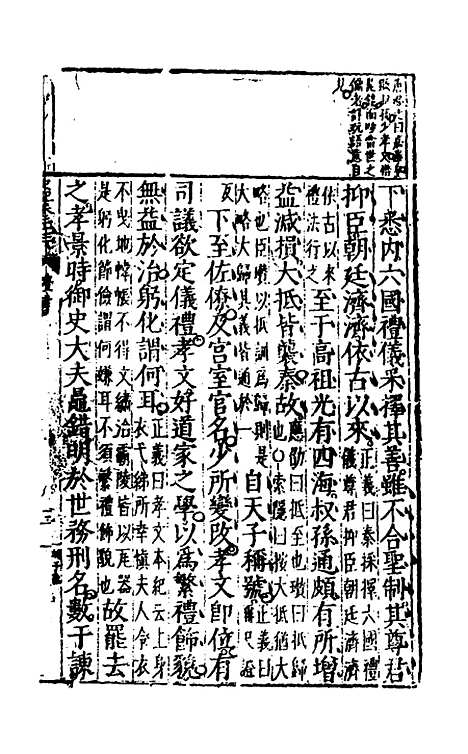 下悉內六國禮儀采擇其善雖不合聖制其尊君
抑臣朝廷濟濟依古以來正義曰秦採擇六國禮儀尊君抑臣朝廷濟濟
依古以來禮法行之至于高祖光有四海叔孫通頗有所增
益減損大抵皆襲秦故應劭曰抵至也瓚曰抵歸也索隱曰按大抵猶大
略也臣瓚以抵訓為歸則是大略大歸其義皆通於一自天子稱號正義曰尺證
反下至佐僚及宮室官名少所變改孝文即位有
司議欲定儀禮孝文好道家之學以為繁禮飾貌
無益於治躬化謂何耳正義曰孝文本紀云上身衣弋綈所幸愼夫人令衣
不曳地幃帳不得文繡治霸陵皆以瓦器是躬化節儉謂何嫌耳不須繁禮飾貌也故罷去
之孝景時御史大夫鼂錯明於世務刑名數干諫